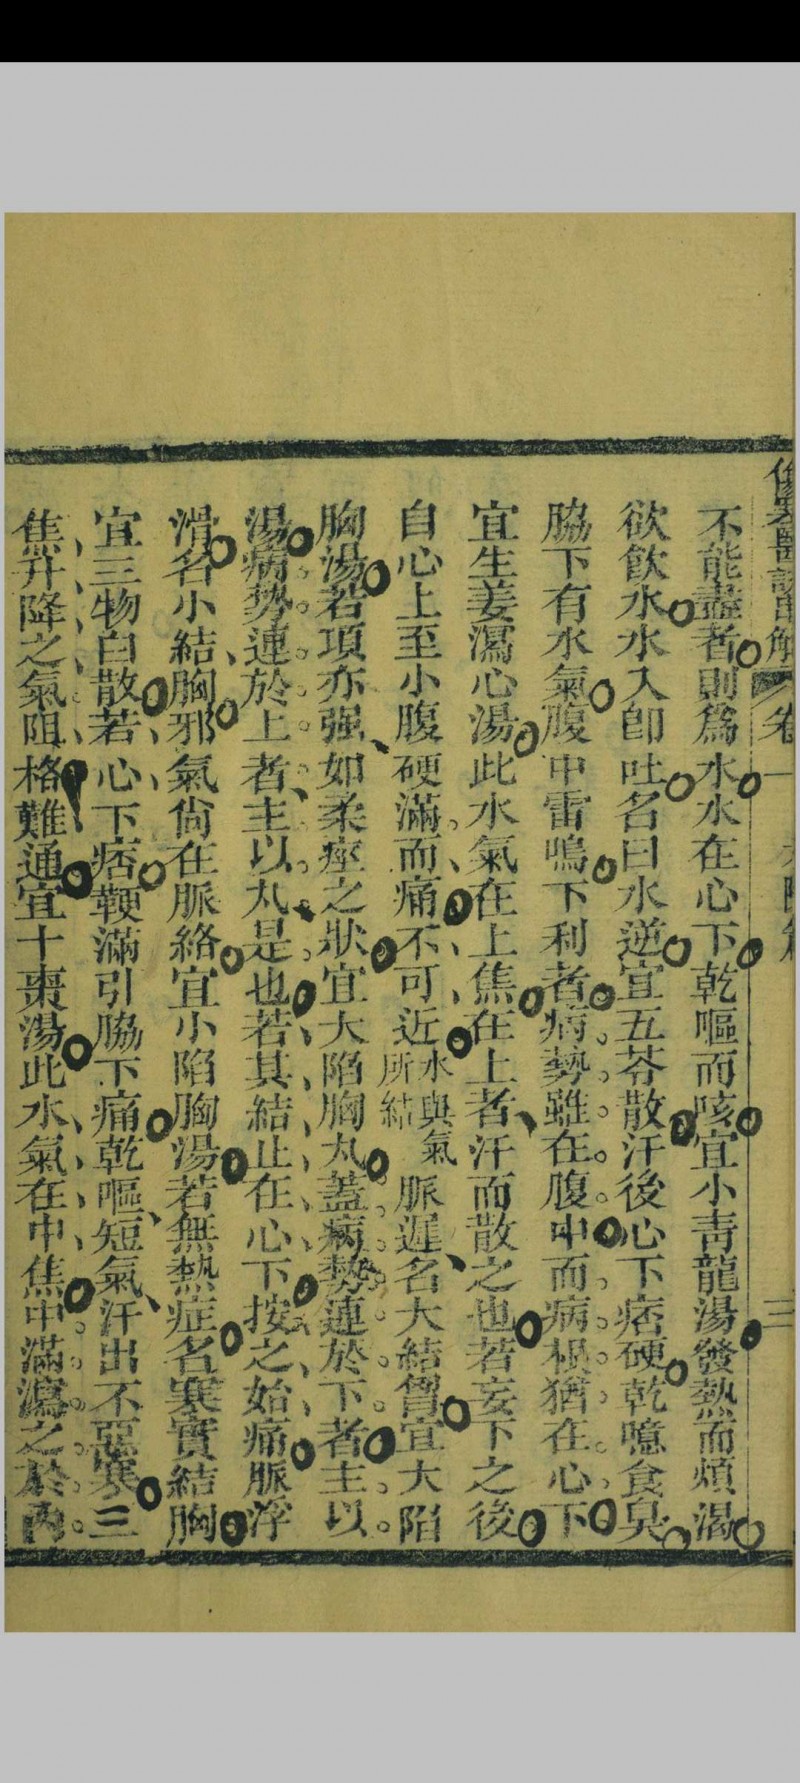 傷寒醫訣串解 卷一
不能盡者則爲水水在心下乾嘔而咳宜小靑龍湯發熱而煩渴
欲飲水水入卽吐名曰水逆宜五苓散汗後心下痞硬乾噫食臭
脇下有水氣腹中雷鳴下利者病勢雖在腹中而病根猶在心下
宜生姜瀉心湯此水氣在上焦在上者汗而散之也若妄下之後
自心上至小腹硬滿而痛不可近水與氣所結脈遲名大結胷宜大陷
胸湯若項亦强如柔痙之狀宜大陷胸丸蓋病勢連於下者主以
湯病勢連於上者主以丸是也若其結止在心下按之始痛脈浮
滑名小結胸邪氣尙在脈絡宜小陷胸湯若無熱症名寒實結胸
宜三物白散若心下痞鞕滿引脇下痛乾嘔短氣汗出不惡寒三
焦升降之氣阻格難通宜十棗湯此水氣在中焦中滿瀉之於內